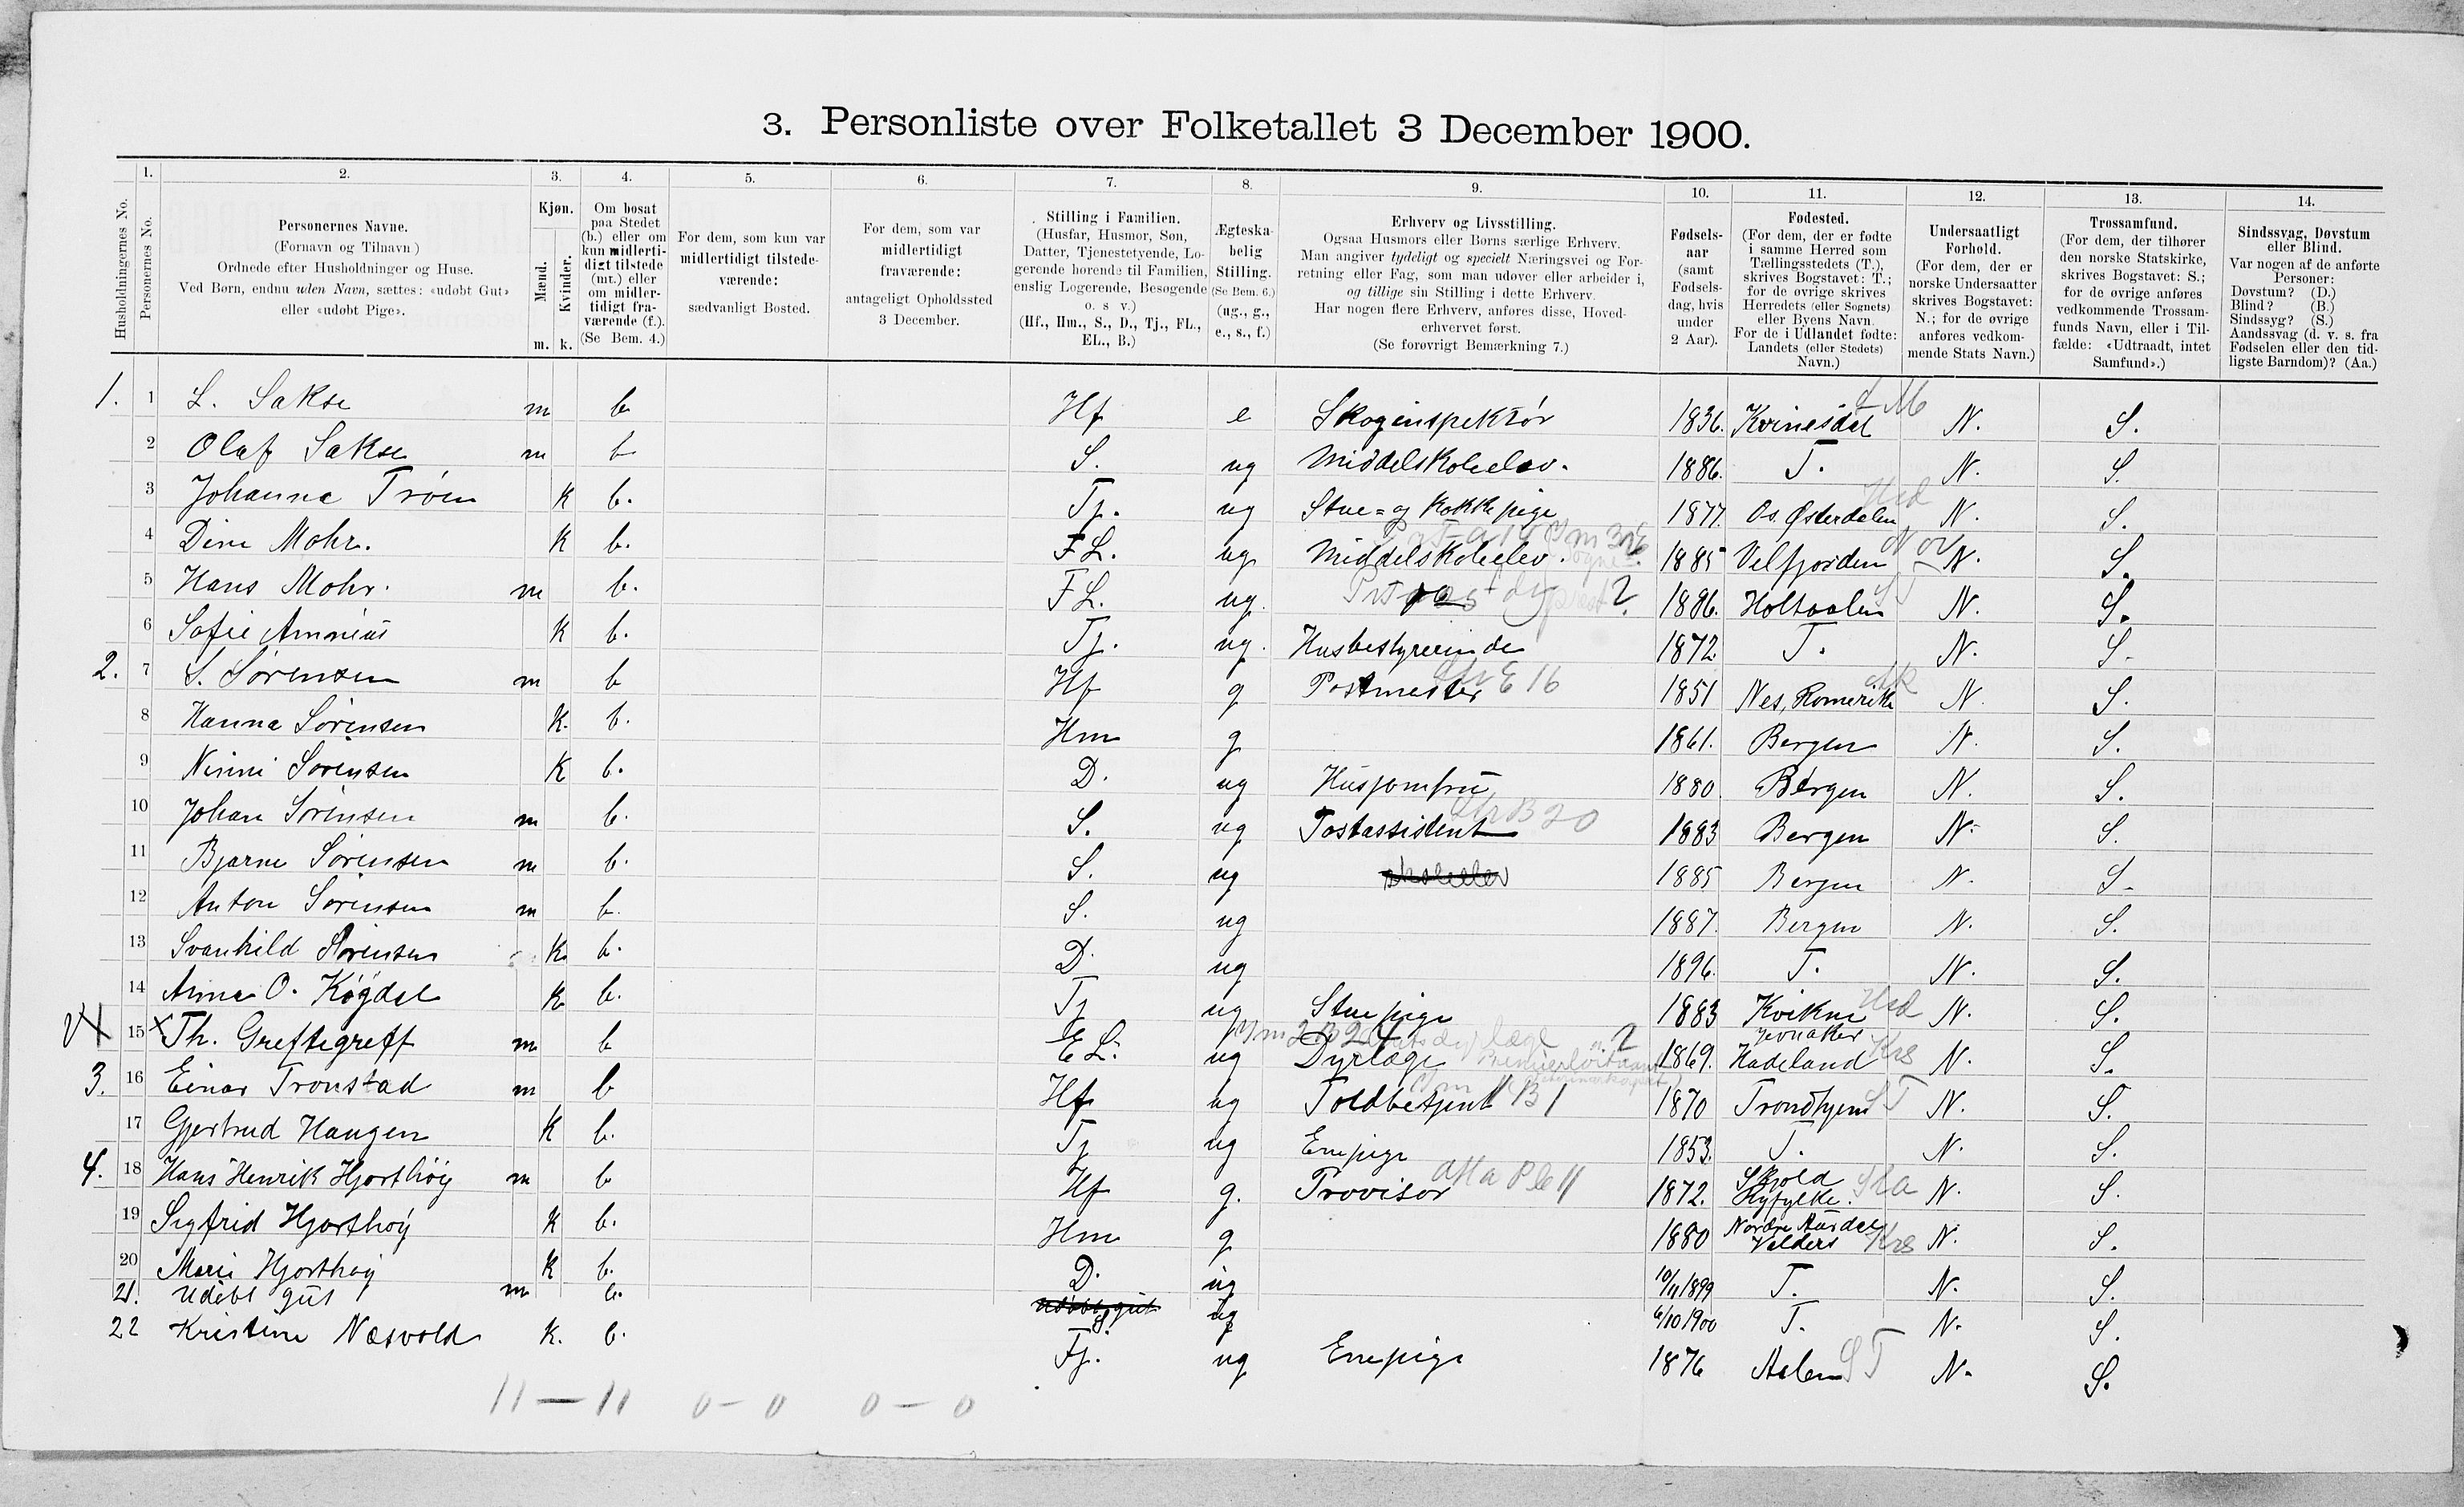 3. Personliste over Folketallet 3 December 1900.
Husholdningernes No.
1.
Personernes No.
2.
Personernes Navne.
(Fornavn og Tilnavn)
Ordnede efter Husholdninger og Huse.
Ved Børn, endnu uden Navn, sættes: «udøbt Gut»
eller «udøbt Pige».
3.
Kjøn.
Mænd.
Kvinder.
m. k.
4.
Om bosat
paa Stedet
(b.) eller om
kun midlerti-
digt tilstede
(mt.) eller
om midler-
tidigt fra-
værende (f.).
(Se Bem. 4.)
5.
For dem, som kun var
midlertidigt tilstede-
værende:
sædvanligt Bosted.
6.
For dem, som var
midlertidigt
fraværende:
antageligt Opholdssted
3 December.
7.
Stilling i Familien.
(Husfar, Husmor, Søn,
Datter, Tjenestetyende, Lo-
gerende hørende til Familien,
enslig Logerende, Besøgende
o. s v.)
(Hf., Hm., S., D., Tj., FL.,
EL., B.)
8.
Ægteska-
belig
Stilling.
(Se Bem. 6.)
(ug., g.,
e., s., f.)
9.
Erhverv og Livsstilling.
Ogsaa Husmors eller Børns særlige Erhverv.
Man angiver tydeligt og specielt Næringsvei og For-
retning eller Fag, som man udøver eller arbeider i,
og tillige sin Stilling i dette Erhverv.
Har nogen flere Erhverv, anføres disse, Hoved-
erhvervet først.
(Se forøvrigt Bemærkning 7.)
10.
Fødsels-
aar
(samt
Fødsels-
dag, hvis
under
2 Aar).
11.
Fødested.
(For dem, der er fødte
i samme Herred som
Tællingsstedets (T.),
skrives Bogstavet: T.;
for de øvrige skrives
Herredets (eller Sognets)
eller Byens Navn.
For de i Udlandet fødte:
Landets (eller Stedets)
Navn.)
12.
Undersaatligt
Forhold.
(For dem, der er
norske Undersaatter
skrives Bogstavet:
N.; for de øvrige
anføres vedkom-
mende Stats Navn.)
13.
Trossamfund.
(For dem, der tilhører
den norske Statskirke,
skrives Bogstavet: S.;
for de øvrige anføres
vedkommende Trossam-
funds Navn, eller i Til-
fælde: «Udtraadt, intet
Samfund».)
14.
Sindssvag, Døvstum
eller Blind.
Var nogen af de anførte
Personer:
Døvstum? (D.)
Blind? (B.)
Sindssyg? (S.)
Aandssvag (d. v. s. fra
Fødselen eller den tid-
ligste Barndom)? (Aa.)
1. 1 L. Sakse m b Hf e Skoginspektør 1836. Kvinesdal LM N. S.
2 Olaf Sakse m b S. ug Middelskoleelev. 1886. T. N. S.
3 Johanna Trøen K b. Tj. ug Stue= og Kokkepige 1877. Os. Østerdalen Hed N. S.
4 Dina Mohr. K b. FL. ug Middelskoleelev. 1885 Velfjorden No N. S.
5 Hans Mohr. m b. FL. ug. 2 1886. Holtaalen ST N. S.
6 Sofie Amnéus K b. Tj. ug. Husbestyrerinde 1872. T. N. S.
2. 7 S. Sørensen m b Hf g Postmester E 16 1851 Nes, Romerike Ak N. S.
8 Hanna Sørensen K. b. Hm g 1861. Bergen N. S.
9 Ninni Sørensen K b. D. ug Husjomfru 1880 Bergen N. S.
10 Johan Sørensen m b. S. ug Postassistent B 20 1883 Bergen N. S.
11 Bjarne Sørensen m b. S. ug skoleelev 1885 Bergen N. S.
12 Anton Sørensen m b. S. ug 1887. Bergen N. S.
13 Svanhild Sørensen K. b. D. ug 1896. T. N. S.
14 Anna O. Køgdal K b. Tj ug Stuepige 1883 Kvikne Hed N. S.
15 X Th. Greftegreff m b EL. ug Dyrlæge 2 1869. Jevnaker Hadeland Krs N. S.
3. 16 Einar Tronstad m b Hf ug Toldbetjent B 1 1870 Trondhjem ST N. S.
17 Gjertrud Haugen K b. Tj ug Enepige 1853. T. N. S.
4. 18 Hans Henrik Hjorthøy m b Hf g. Provisor 11 1872. Skjold Ryfylke. Sta N. S.
19 Sigfrid Hjorthøy K b. Hm g 1880 Nordre Aurdal Valders Krs N. S.
20 Marie Hjorthøy K b. D. ug 10/11 1899 T. N. S.
21. Udøbt gut m b. udøbt gut S. ug 6/10 1900 T. N. S.
22 Kristine Næsvold K. b. Tj. ug Enepige 1876 Aalen ST N. S.
11 — 11 0 — 0 0 — 0